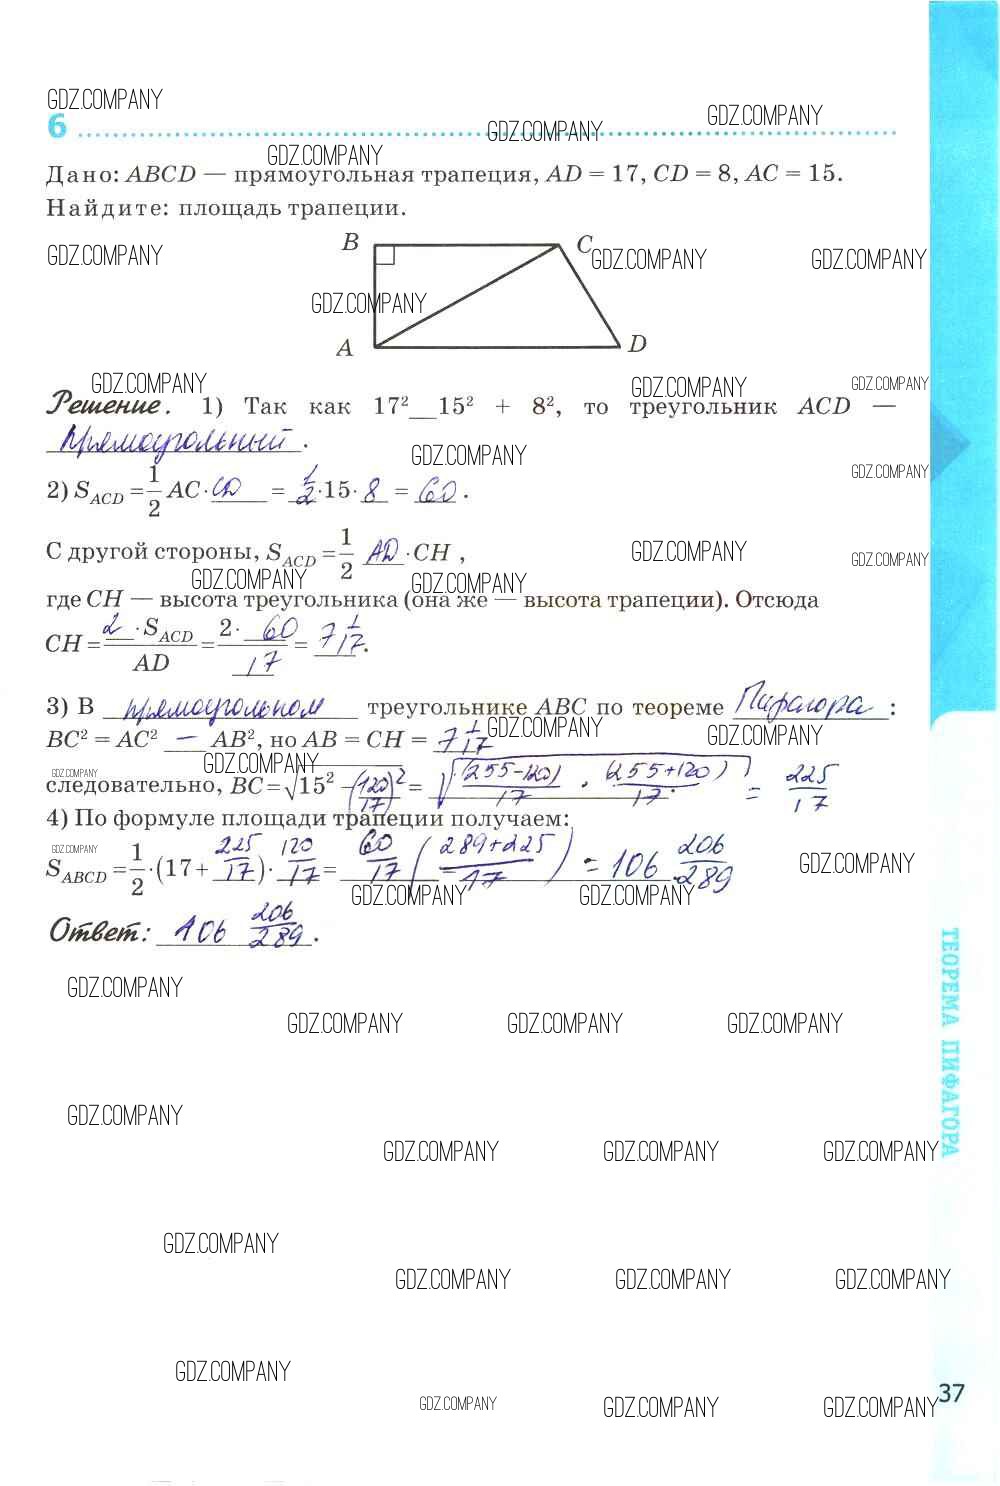 GDZ.COMPANY
6
GDZ.COMPANY GDZ.COMPANY
GDZ.COMPANY
Дано: ABCD — прямоугольная трапеция, AD = 17, CD = 8, AC = 15.
Найдите: площадь трапеции.
B C
GDZ.COMPANY GDZ.COMPANY GDZ.COMPANY
GDZ.COMPANY
A D
GDZ.COMPANY GDZ.COMPANY GDZ.COMPANY
Решение. 1) Так как 17² __ 15² + 8², то треугольник ACD —
прямоугольный.
GDZ.COMPANY GDZ.COMPANY
2) S_ACD = 1/2 AC · CD = 1/2 · 15 · 8 = 60.
С другой стороны, S_ACD = 1/2 AD · CH,
GDZ.COMPANY GDZ.COMPANY
GDZ.COMPANY GDZ.COMPANY
где CH — высота треугольника (она же — высота трапеции). Отсюда
CH = 2 · S_ACD / AD = 2 · 60 / 17 = 7 1/17.
3) В прямоугольном треугольнике ABC по теореме Пифагора:
GDZ.COMPANY GDZ.COMPANY
BC² = AC² — AB², но AB = CH = 7 1/17
GDZ.COMPANY GDZ.COMPANY
следовательно, BC = √15² − (120/17)² = √(255−120)/17 · (255+120)/17 = 225/17
4) По формуле площади трапеции получаем:
GDZ.COMPANY
S_ABCD = 1/2 · (17 + 225/17) · 120/17 = 60/17 (289+225/17) = 106 206/289
GDZ.COMPANY
GDZ.COMPANY GDZ.COMPANY
Ответ: 106 206/289.
ТЕОРЕМА ПИФАГОРА
GDZ.COMPANY
GDZ.COMPANY GDZ.COMPANY GDZ.COMPANY
GDZ.COMPANY
GDZ.COMPANY GDZ.COMPANY GDZ.COMPANY
GDZ.COMPANY
GDZ.COMPANY GDZ.COMPANY GDZ.COMPANY
GDZ.COMPANY
GDZ.COMPANY GDZ.COMPANY GDZ.COMPANY
37